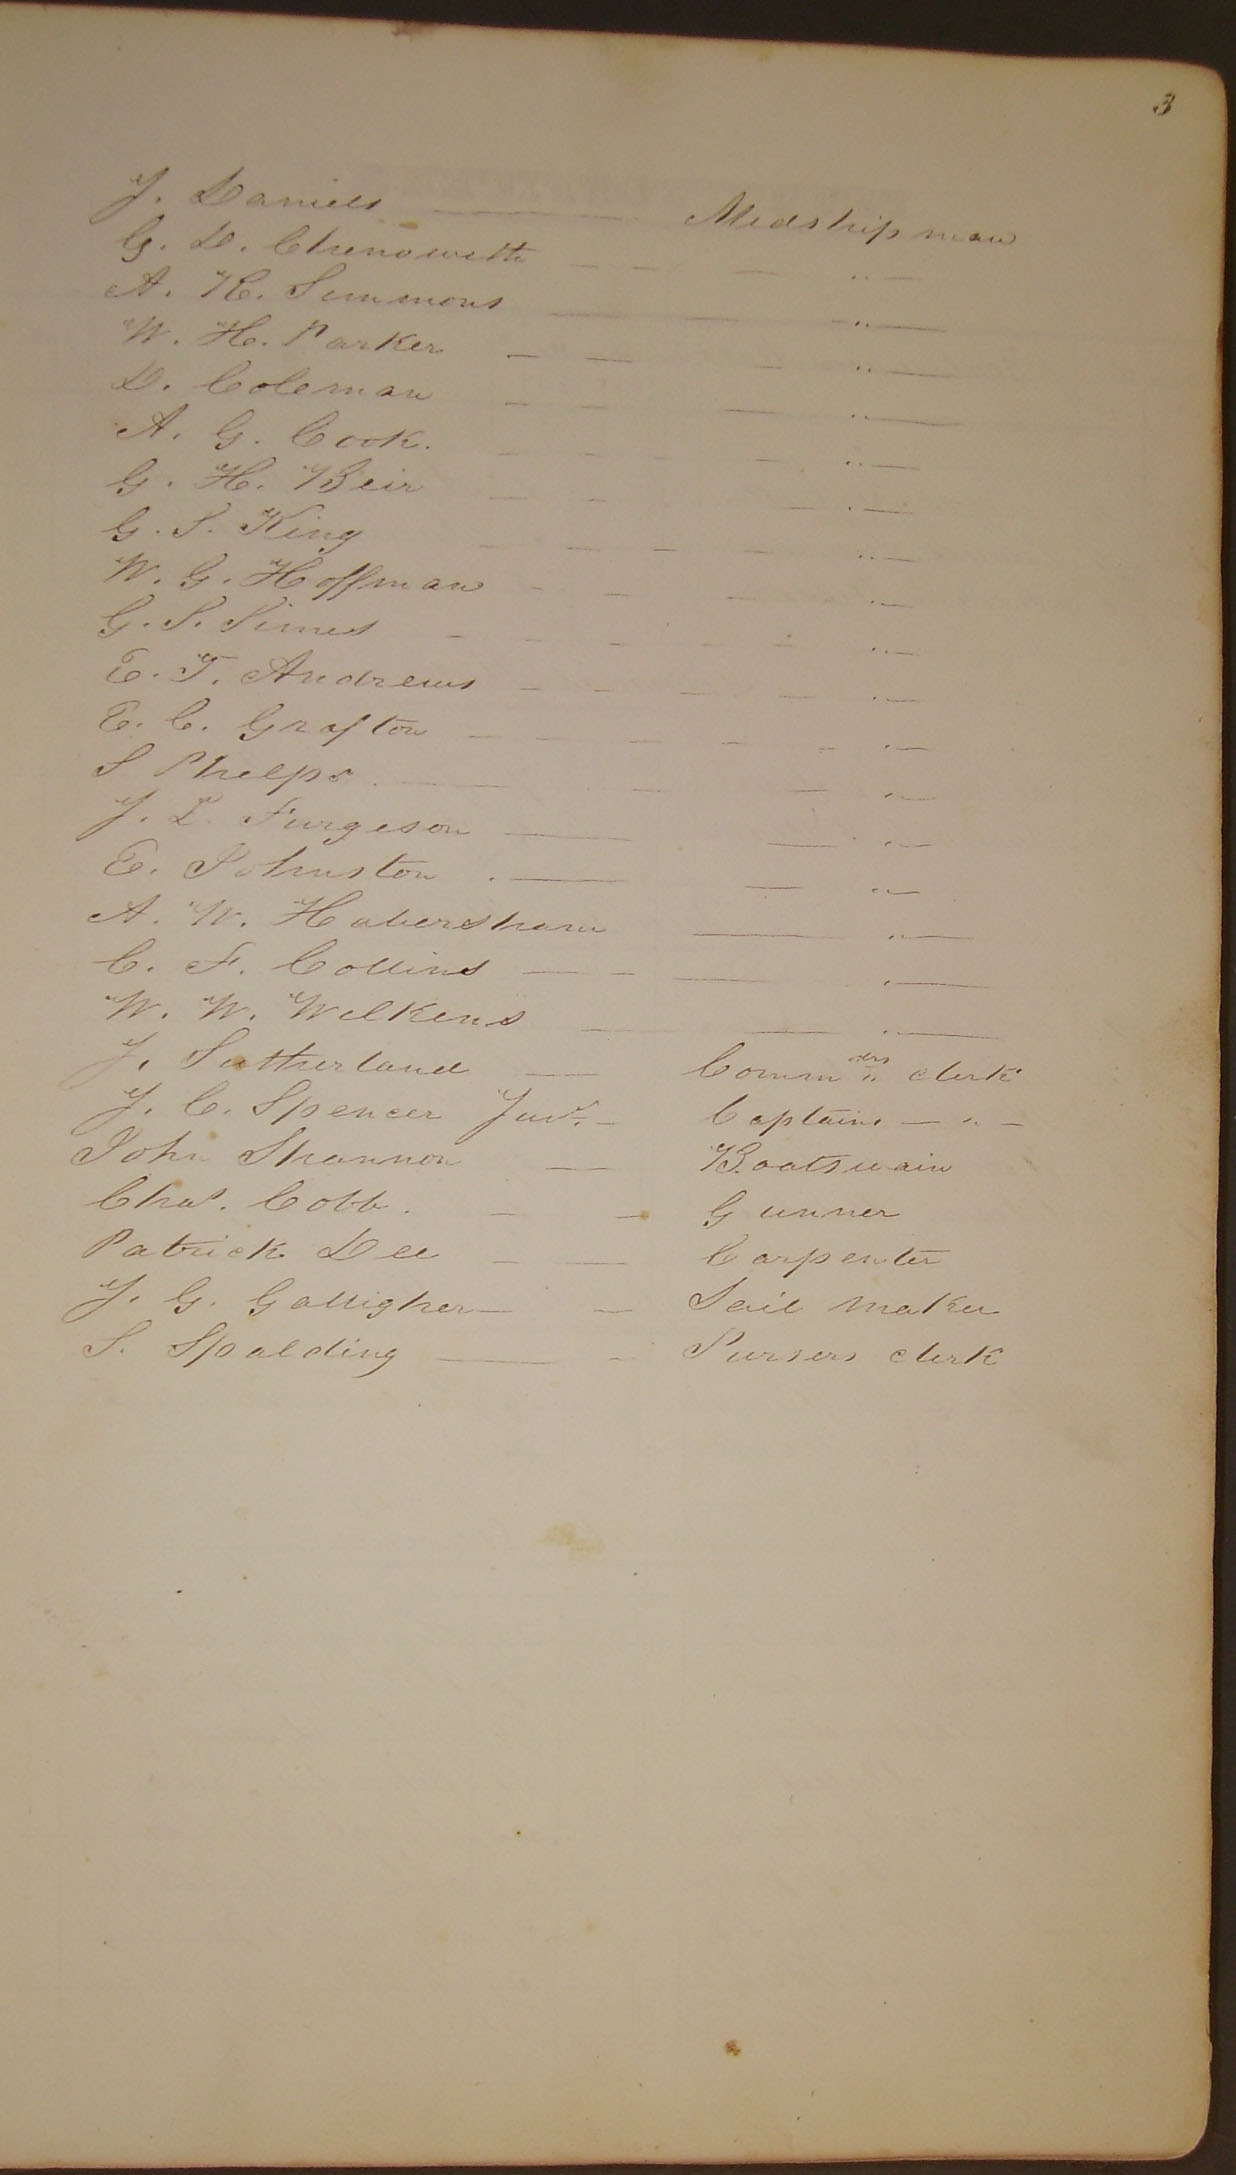 3
J. Daniels — Midshipman
G. D. Chenoweth — — — " —
A. K. Simmons — — — " —
W. H. Parker — — — " —
D. Coleman — — — " —
A. G. Cook. — — — — " —
G. H. Beir — — — " —
G. S. King — — — — " —
W. G. Hoffman — — — " —
G. S. Simes — — — — — " —
E. T. Andrews — — — — " —
E. C. Grafton — — — — — " —
S Phelps. — — — " —
J. L. Furgeson — — " —
E. Johnston . — — " —
A. W. Habersham — " —
C. F. Collins — — — " —
W. W. Wilkens — — " —
J. Sutherland — Commdrs clerk
J. C. Spencer Junr. — Captains — " —
John Shannon — Boatswain
Chas. Cobb. — — Gunner
Patrick Dee — — Carpenter
J. G. Galligher — — Sail Maker
S. Spalding — — Pursers clerk